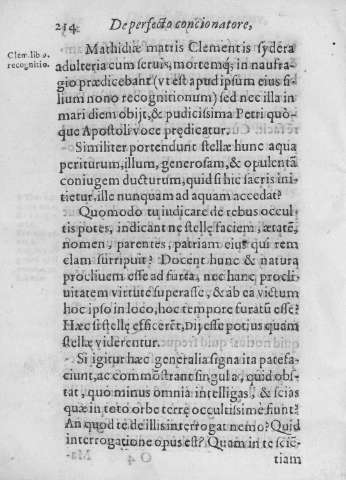 214 De perfecto concionatore,
Clem. lib 9.
recognitio.
Mathidiæ matris Clementis sydera
adulteria cum seruis, mortemq; in naufra-
gio prædicebant (vt est apud ipsum eius fi-
lium nono recognitionum) sed nec illa in
mari diem obijt, & pudicissima Petri quò-
que Apostoli voce prędicatur.
Similiter portendunt stellæ hunc aqua
periturum, illum, generosam, & opulentã
coniugem ducturum, quid si hic sacris ini-
tietur, ille nunquam ad aquam accedat?
Quomodo tu iudicare de rebus occul-
tis potes, indicant ne stellę faciem, ætatẽ,
nomen, parentes, patriam eius qui rem
clam surripuit? Docent hunc & natura
procliuem esse ad furta, nec hanc procli-
uitatem virtute superasse, & ab ea victum
hoc ipso in loco, hoc tempore furatũ esse?
Hæc si stellę efficerẽt, Dij esse potius quam
stellæ viderentur.
Si igitur hæc generalia signa ita patefa-
ciunt, ac commõstrant singula, quid obs-
tat, quo minus omnia intelligas, & scias
quæ in toto orbe terrę occultissimè fiunt?
An quod te de illis interrogat nemo? Quid
interrogatione opus est? Quam in te sciẽ-
tiam